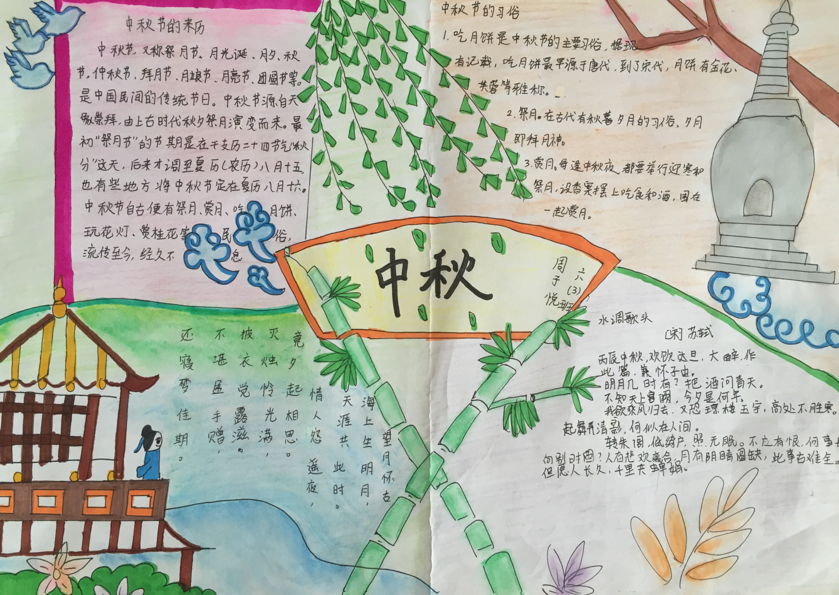 中秋节的来历
中秋节,又称祭月节、月光诞、月夕、秋
节、仲秋节、拜月节、月娘节、月亮节、团圆节等,
是中国民间的传统节日。中秋节源自天
象崇拜,由上古时代秋夕祭月演变而来。最
初“祭月节”的节期是在干支历二十四节气“秋
分”这天,后来才调至夏历(农历)八月十五,
也有些地方将中秋节定在夏历八月十六。
中秋节自古便有祭月、赏月、吃月饼、
玩花灯、赏桂花 民 俗,
流传至今,经久不 息
中秋节的习俗
1.吃月饼是中秋节的主要习俗,据现
有记载,吃月饼最早源于唐代,到了宋代,月饼有金花、
芙蓉等雅称。
2.祭月。在古代有秋暮夕月的习俗,夕月
即拜月神。
3.赏月。每逢中秋夜,都要举行迎寒和
祭月,设香案摆上吃食和酒,围在
一起赏月。
中秋
六(3)班
周子悦
望月怀古
海上生明月,
天涯共此时。
情人怨遥夜,
竟夕起相思。
灭烛怜光满,
披衣觉露滋。
不堪盈手赠,
还寝梦佳期。
水调歌头
[宋]苏轼
丙辰中秋,欢饮达旦,大醉,作
此篇,兼怀子由。
明月几时有?把酒问青天。
不知天上宫阙,今夕是何年。
我欲乘风归去,又恐琼楼玉宇,高处不胜寒。
起舞弄清影,何似在人间。
转朱阁,低绮户,照无眠。不应有恨,何事长
向别时圆?人有悲欢离合,月有阴晴圆缺,此事古难全。
但愿人长久,千里共婵娟。